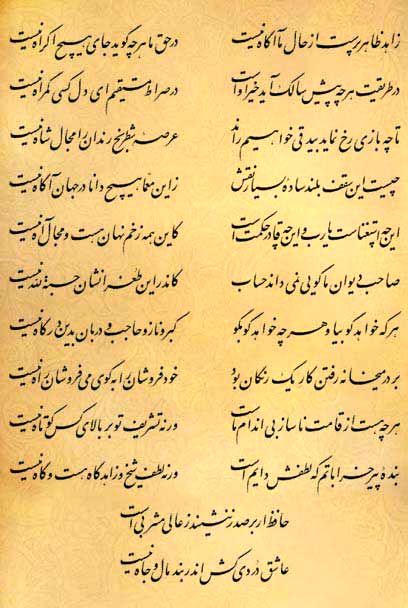 زاهد ظاهرپرست از حال ما آگاه نیست در حق ما هر چه گوید جای هیچ اکراه نیست
در طریقت هر چه پیش سالک آید خیر اوست در صراط مستقیم ای دل کسی گمراه نیست
تا چه بازی رخ نماید بیدقی خواهیم راند عرصه شطرنج رندان را مجال شاه نیست
چیست این سقف بلند ساده بسیار نقش زین معما هیچ دانا در جهان آگاه نیست
این چه استغناست یارب وین چه قادر حکمت است کاین همه زخم نهان هست و مجال آه نیست
صاحب دیوان ما گویی نمی داند حساب کاندر این طغرا نشان حسبة لله نیست
هر که خواهد گو بیا و هر چه خواهد گو بگو کبر و ناز و حاجب و دربان بدین درگاه نیست
بر در میخانه رفتن کار یک رنگان بود خود فروشان را به کوی می فروشان راه نیست
هر چه هست از قامت ناساز بی اندام ماست ورنه تشریف تو بر بالای کس کوتاه نیست
بنده پیر خراباتم که لطفش دایم است ورنه لطف شیخ و زاهد گاه هست و گاه نیست
حافظ ار بر صدر ننشیند ز عالی مشربی است
عاشق دردی کش اندر بند مال و جاه نیست